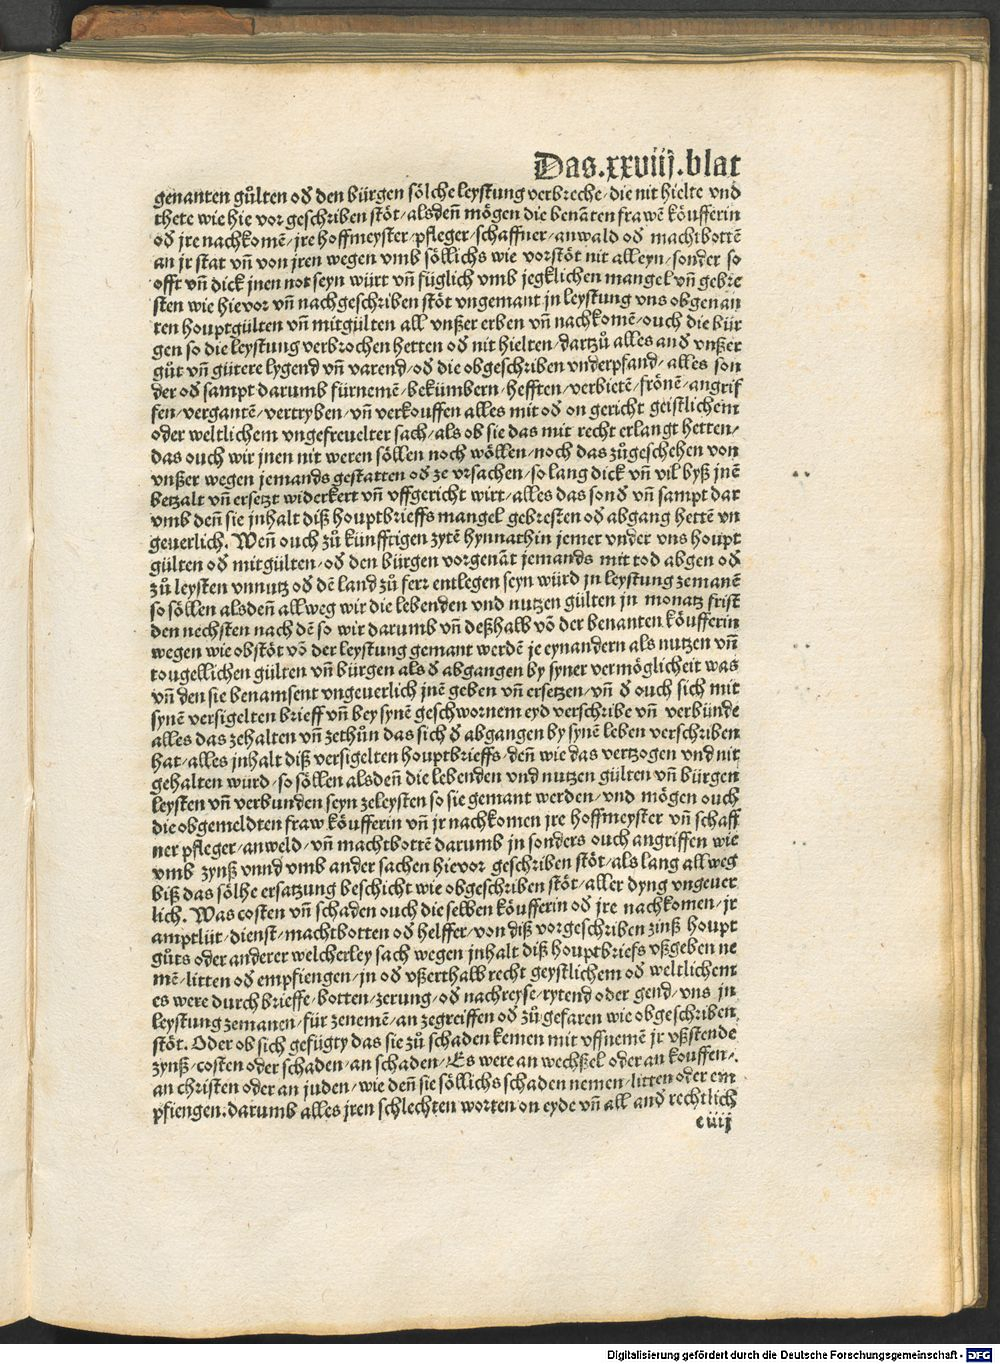 Das.xxviij.blat
genanten gůlten oď den bürgen sölche leystung verbreche/die nit hielte vnd
thete wie hie vor geschriben stöt/alsdeñ mögen die benãten frawẽ köufferin
oď jre nachkomẽ/jre hoffmeyster/pfleger/schaffner/anwald oď machtbottẽ
an jr stat vñ von jren wegen vmb söllichs wie vorstöt nit alleyn/sonder so
offt vñ dick jnen not seyn würt vñ füglich vmb jegklichen mangel vñ gebre
sten wie hievor vñ nachgeschriben stöt vngemant jn leystung vns obgenan
ten houptgülten vñ mitgülten all vnßer erben vñ nachkomẽ/ouch die bür
gen so die leystung verbrochen hetten oď nit hielten/dartzů alles anď vnßer
gůt vñ gütere lygend vñ varend/oď die obgeschriben vnderpfand/alles son
der oď sampt darumb fürnemẽ/bekümbern/hefften/verbietẽ/frönẽ/angrif
fen/vergantẽ/vertryben/vñ verkouffen alles mit oď on gericht geistlichem
oder weltlichem vngefreuelter sach/als ob sie das mit recht erlangt hetten/
das ouch wir jnen nit weren söllen noch wöllen/noch das zůgeschehen von
vnßer wegen jemands gestatten oď ze vrsachen/so lang dick vñ vil byß jnẽ
betzalt vñ ersetzt widerkert vñ vffgericht wirt/alles das sonď vñ sampt dar
vmb deñ sie jnhalt diß houptbrieffs mangel gebresten oď abgang hettẽ vn
geuerlich. Weñ ouch zů künfftigen zytẽ hynnathin jemer vnder vns houpt
gülten oď mitgülten/oď den bürgen vorgenãt jemands mit tod abgen oď
zů leysten vnnutz oď dẽ land zů ferr entlegen seyn würd jn leystung zemanẽ
so söllen alsdeñ allweg wir die lebenden vnd nutzen gülten jn monatz frist
den nechsten nach dẽ so wir darumb vñ deßhalb võ der benanten köufferin
wegen wie obstöt võ der leystung gemant werdẽ je eynandern als nutzen vñ
tougellichen gülten vñ bürgen als ď abgangen by syner vermöglicheit was
vñ den sie benamsent vngeuerlich jnẽ geben vñ ersetzen/vñ ď ouch sich mit
synẽ versigelten brieff vñ bey synẽ geschwornem eyd verschribe vñ verbünde
alles das zehalten vñ zethůn das sich ď abgangen by synẽ leben verschriben
hat/alles jnhalt diß versigelten houptbrieffs/deñ wie das vertzogen vnd nit
gehalten würd/so söllen alsdeñ die lebenden vnd nutzen gülten vñ bürgen
leysten vñ verbunden seyn zeleysten so sie gemant werden/vnd mögen ouch
die obgemeldten fraw köufferin vñ jr nachkomen jre hoffmeyster vñ schaff
ner pfleger/anweld/vñ machtbottẽ darumb jn sonders ouch angriffen wie
vmb zynß vnnd vmb ander sachen hievor geschriben stöt/als lang allweg
biß das sölhe ersatzung beschicht wie obgeschriben stöt/aller dyng vngeuer
lich. Was costen vñ schaden ouch die selben köufferin oď jre nachkomen/jr
amptlüt/dienst/machtbotten oď helffer/von diß vorgeschriben zinß houpt
gůts oder anderer welcherley sach wegen jnhalt diß houptbriefs vßgeben ne
mẽ/litten oď empfiengen/jn oď vßerthalb recht geystlichem oď weltlichem
es were durch brieffe/botten/zerung/oď nachreyse/rytend oder gend/vns jn
leystung zemanen/für zenemẽ/an zegreiffen oď zů gefaren wie obgeschriben
stöt. Oder ob sich gefügty das sie zů schaden kemen mit vffnemẽ jr vßstende
zynß/costen oder schaden/an schaden/Es were an wechßel oder an kouffen/.
an christen oder an juden/wie deñ sie söllichs schaden nemen/litten oder em
pfiengen.darumb alles jren schlechten worten on eyde vñ all anď rechtlich
e iiij
Digitalisierung gefördert durch die Deutsche Forschungsgemeinschaft - DFG